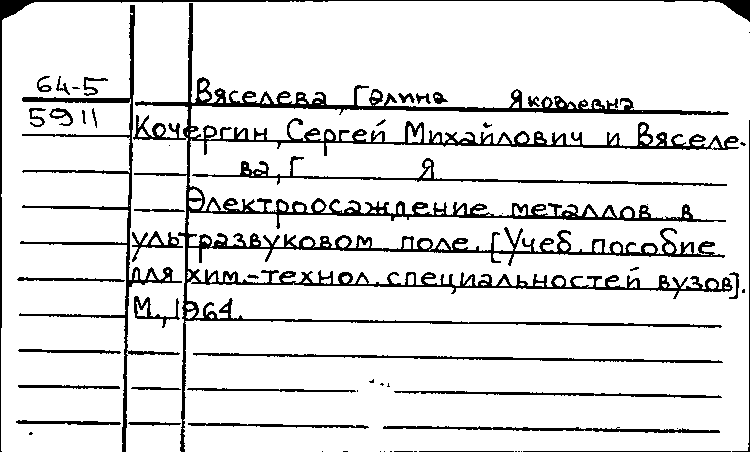 64-5
5911
Вяселева, Галина Яковлевна
Кочергин, Сергей Михайлович и Вяселе-
ва, Г Я
Электроосаждение металлов в
ультразвуковом поле. [Учеб. пособие
для хим.-технол. специальностей вузов].
М., 1964.